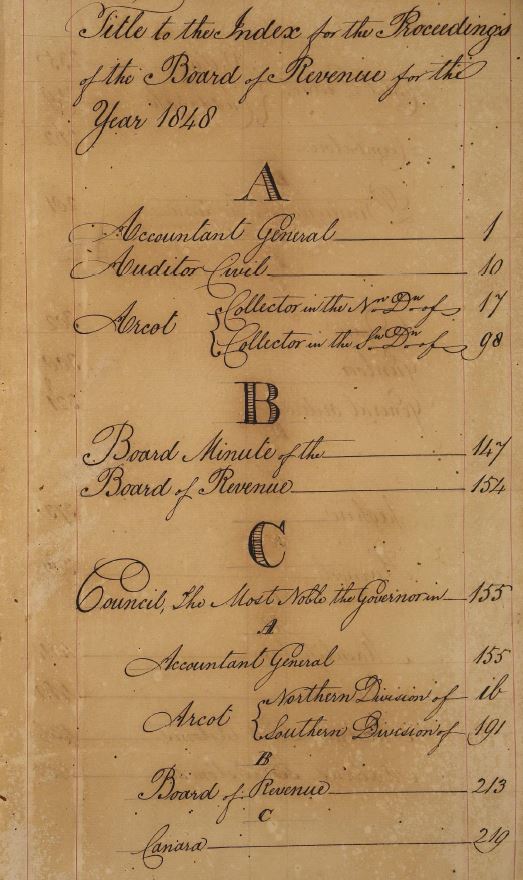 Title to the Index for the Proceedings
of the Board of Revenue for the
Year 1848
A
Accountant General 1
Auditor Civil 10
Arcot { Collector in the Nn Dn of 17
{ Collector in the Sn Dn of 98
B
Board Minute of the 147
Board of Revenue 154
C
Council, The Most Noble the Governor in 155
A
Accountant General 155
Arcot { Northern Division of ib
{ Southern Division of 191
B
Board of Revenue 213
C
Canara 219